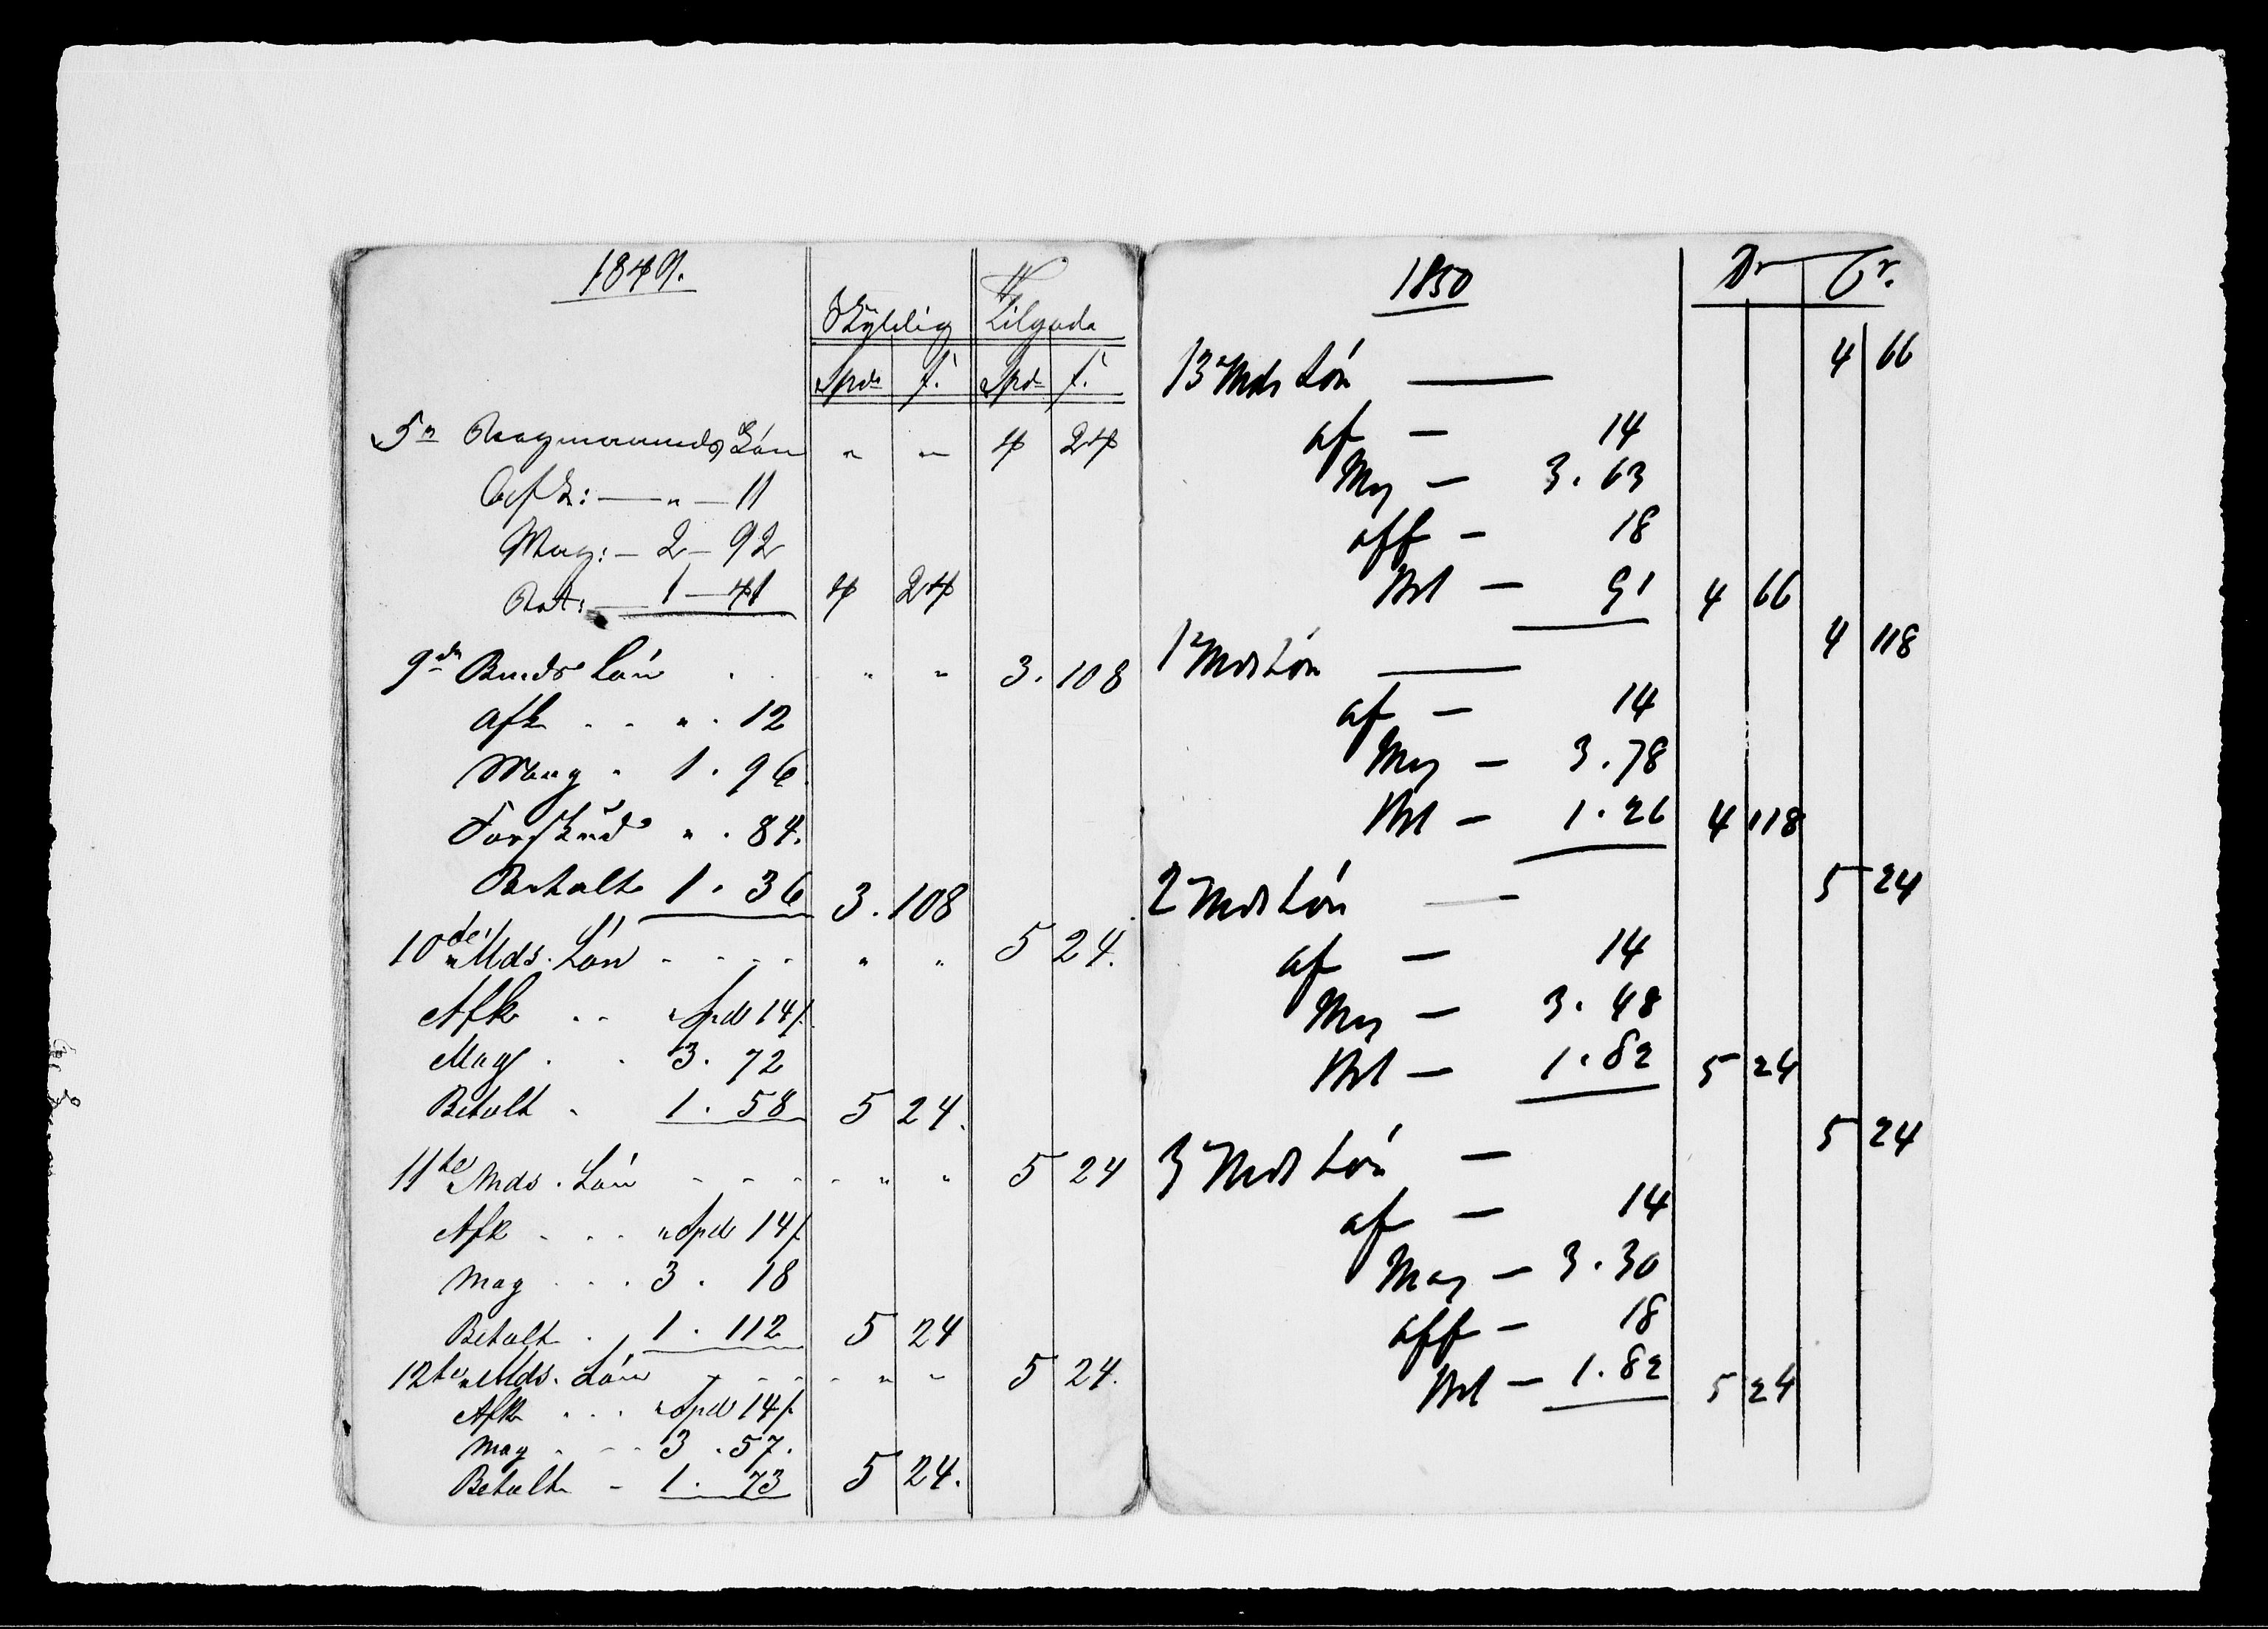 1849.
Skyldig Tilgode
Spd s. Spd s.
5te Regnmaaneds Lön " " 4 24
Afk: — " — 11
Mag: — 2 — 92
Bet: — 1 — 41 4 24
9de Bmds Lön . . " " 3. 108
Afk . . " . 12
Mag . 1. 96
Forskud " . 84.
Betalt 1. 36 3. 108
10de Mds. Lön - - - - " " 5 24.
Afk . . " Spd 14 s
Mag . . 3. 72
Betalt . 1. 58 5 24.
11te Mds. Lön - - - - - " " 5 24
Afk . . . " Spd 14 s
Mag . . . 3. 18
Betalt . 1. 112 5 24
12te Mds. Lön - - - - " " 5 24.
Afk . . . " Spd 14 s
Mag . - - 3. 57.
Betalt - 1. 73 5 24.
1850
Dr Cr.
13 Mds Lön — 4 66
af — 14
Mag — 3. 63
aff — 18
Btl — 91 4 66
1 Mds Lön — 4 118
af — 14
Mag — 3. 78
Btl — 1. 26 4 118
2 Mds Lön — 5 24
af — 14
Mag — 3. 48
Btl — 1. 82 5 24
3 Mds Lön — 5 24
af — 14
Mag — 3. 30
aff — 18
Btl — 1. 82 5 24